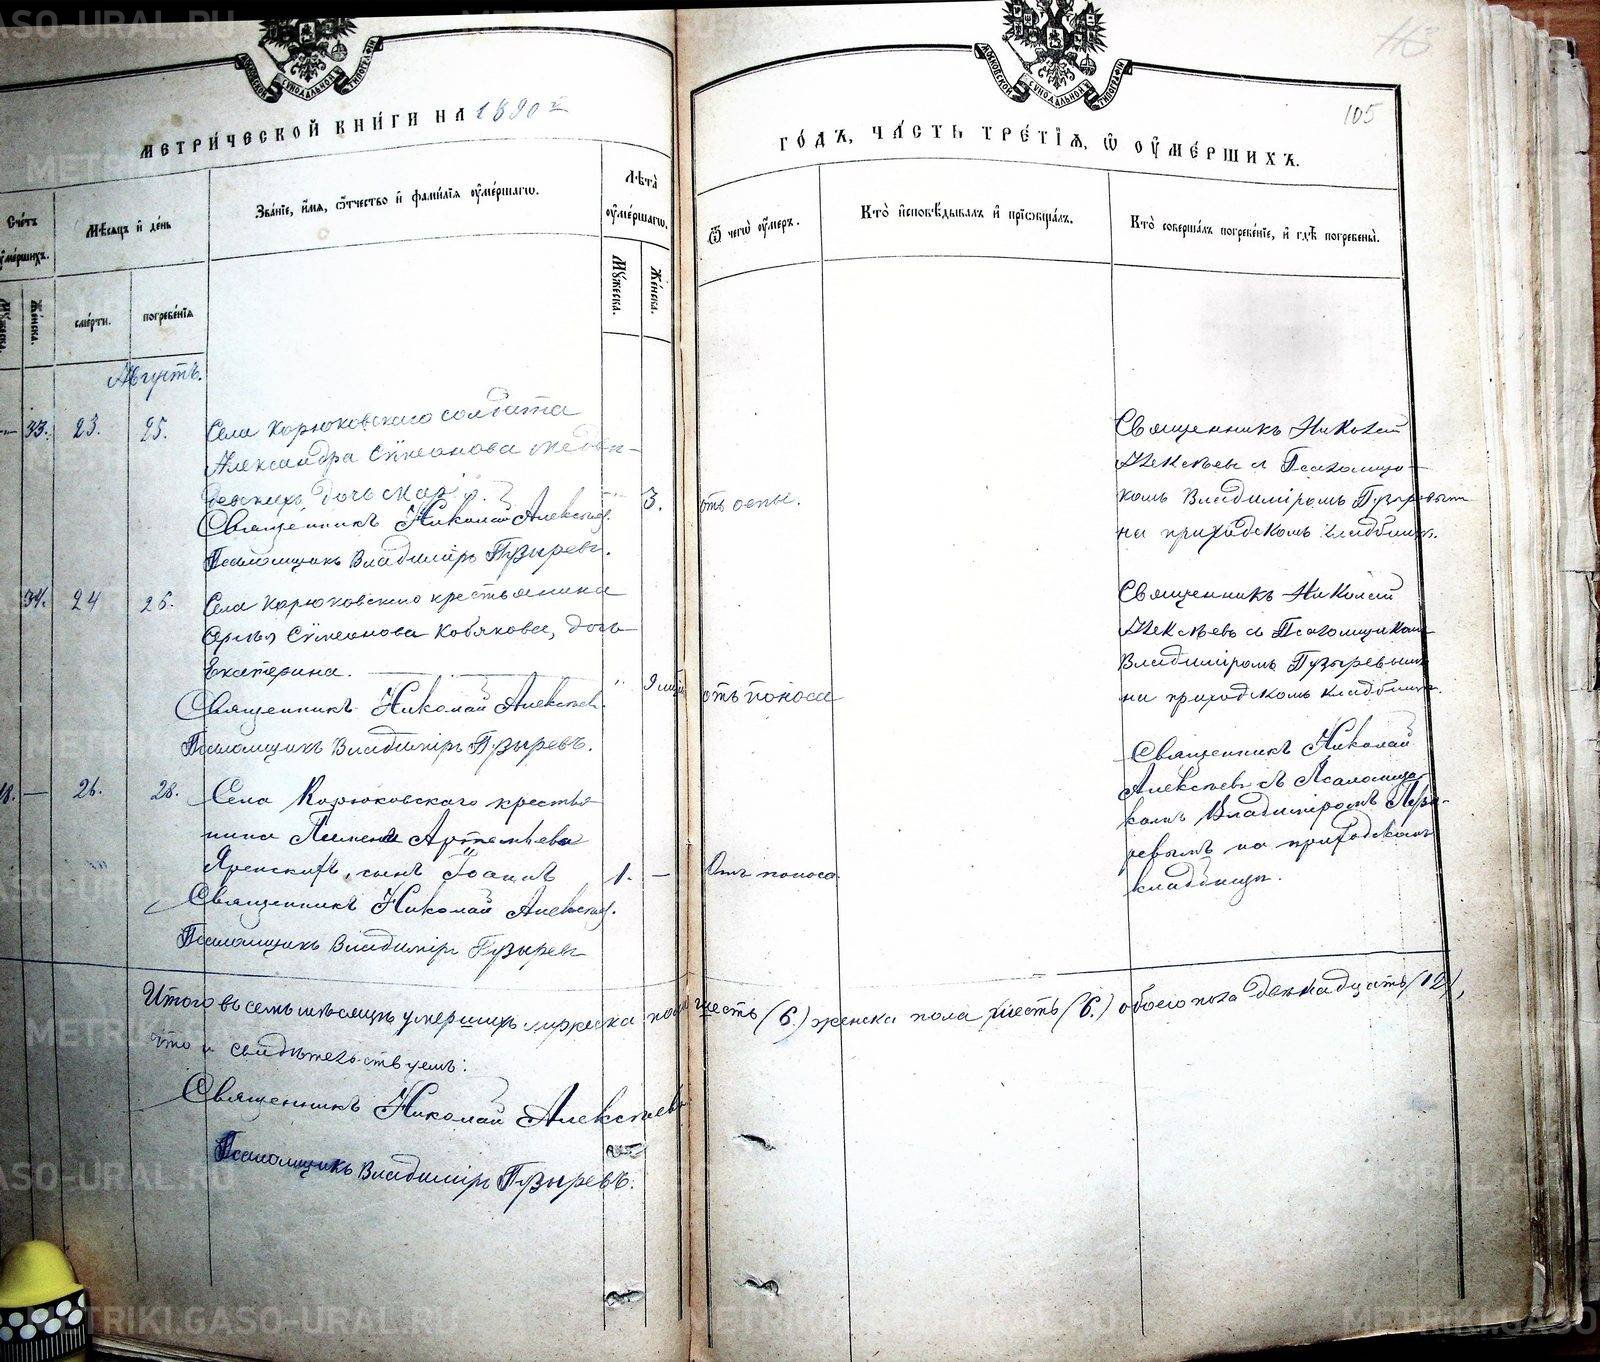 МЕТРИ́ЧЕСКОЙ КНИ́ГИ НА 1890 й
ГО́ДЪ, ЧА́СТЬ ТРЕ́ТІЯ, Ѿ ОУ҆МЕ́РШИХЪ.
113
105
Сче́тъ оу҆ме́ршихъ.
Мꙋ́жеска.
Же́нска.
Мѣ́сяцъ и҆ де́нь
сме́рти.
погребе́нїѧ
Зва́нїе, и҆́мѧ, ѻ҆́тчество и҆ фами́лїѧ оу҆ме́ршагѡ.
Лѣ́та оу҆ме́ршагѡ.
Мꙋ́жеска.
Же́нска.
Ѿ чегѡ̀ оу҆́меръ.
Кто̀ и҆сповѣ́дывалъ и҆ прїѡбща́лъ.
Кто̀ соверша́лъ погребе́нїе, и҆ гдѣ̀ погребены̀.
Августъ.
— 33. 23. 25.
Села Корюковскаго солдата
Александра Сѵмеонова
дочь
Священникъ Николай Алексѣев.
Псаломщикъ Владимiръ Пузыревъ.
" 3.
отъ оспы.
Священникъ Николай
Алексѣевъ с Псаломщи-
комъ Владимiромъ Пузыревым
на приходскомъ кладбищѣ.
34. 24 26.
Села Корюковскаго крестьянина
Сѵмеонова Кобякова, дочь
Екатерина.
Священникъ Николай Алексѣев.
Псаломщикъ Владимiръ Пузыревъ.
" 9 мѣс
отъ поноса
Священникъ Николай
Алексѣевъ съ Псаломщиком
Владимiромъ Пузыревымъ
на приходскомъ кладбищѣ.
18. — 26. 28.
Села Корюковскаго крестья-
нина Пимена Артемьева
Яренскихъ, сынъ Іоаннъ
Священникъ Николай Алексѣев.
Псаломщикъ Владимiръ Пузыревъ
1. —
Отъ поноса.
Священникъ Николай
Алексѣевъ съ Псаломщи-
комъ Владимiромъ Пузы-
ревымъ на приходскомъ
кладбищѣ.
Итого въ семъ мѣсяцѣ умершихъ мужеска пола шесть (6.) женска пола шесть (6.) обоего пола двенадцать (12),
что и свидѣтельствуемъ:
Священникъ Николай Алексѣевъ
Псаломщикъ Владимiръ Пузыревъ.